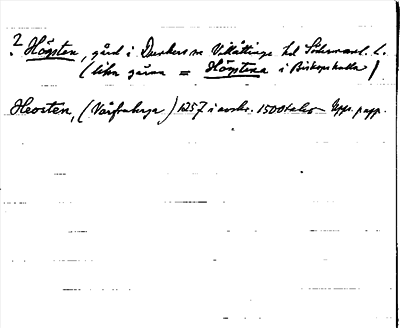 ? Högsten, gård i Dunkers sn Villåttinge hd Söderman. l.
(låhn gåvan = Högstena i Biskopskulla)
Heosten, (Vårfruberga) 1257 i avskr. 1500talet Upps. papp.